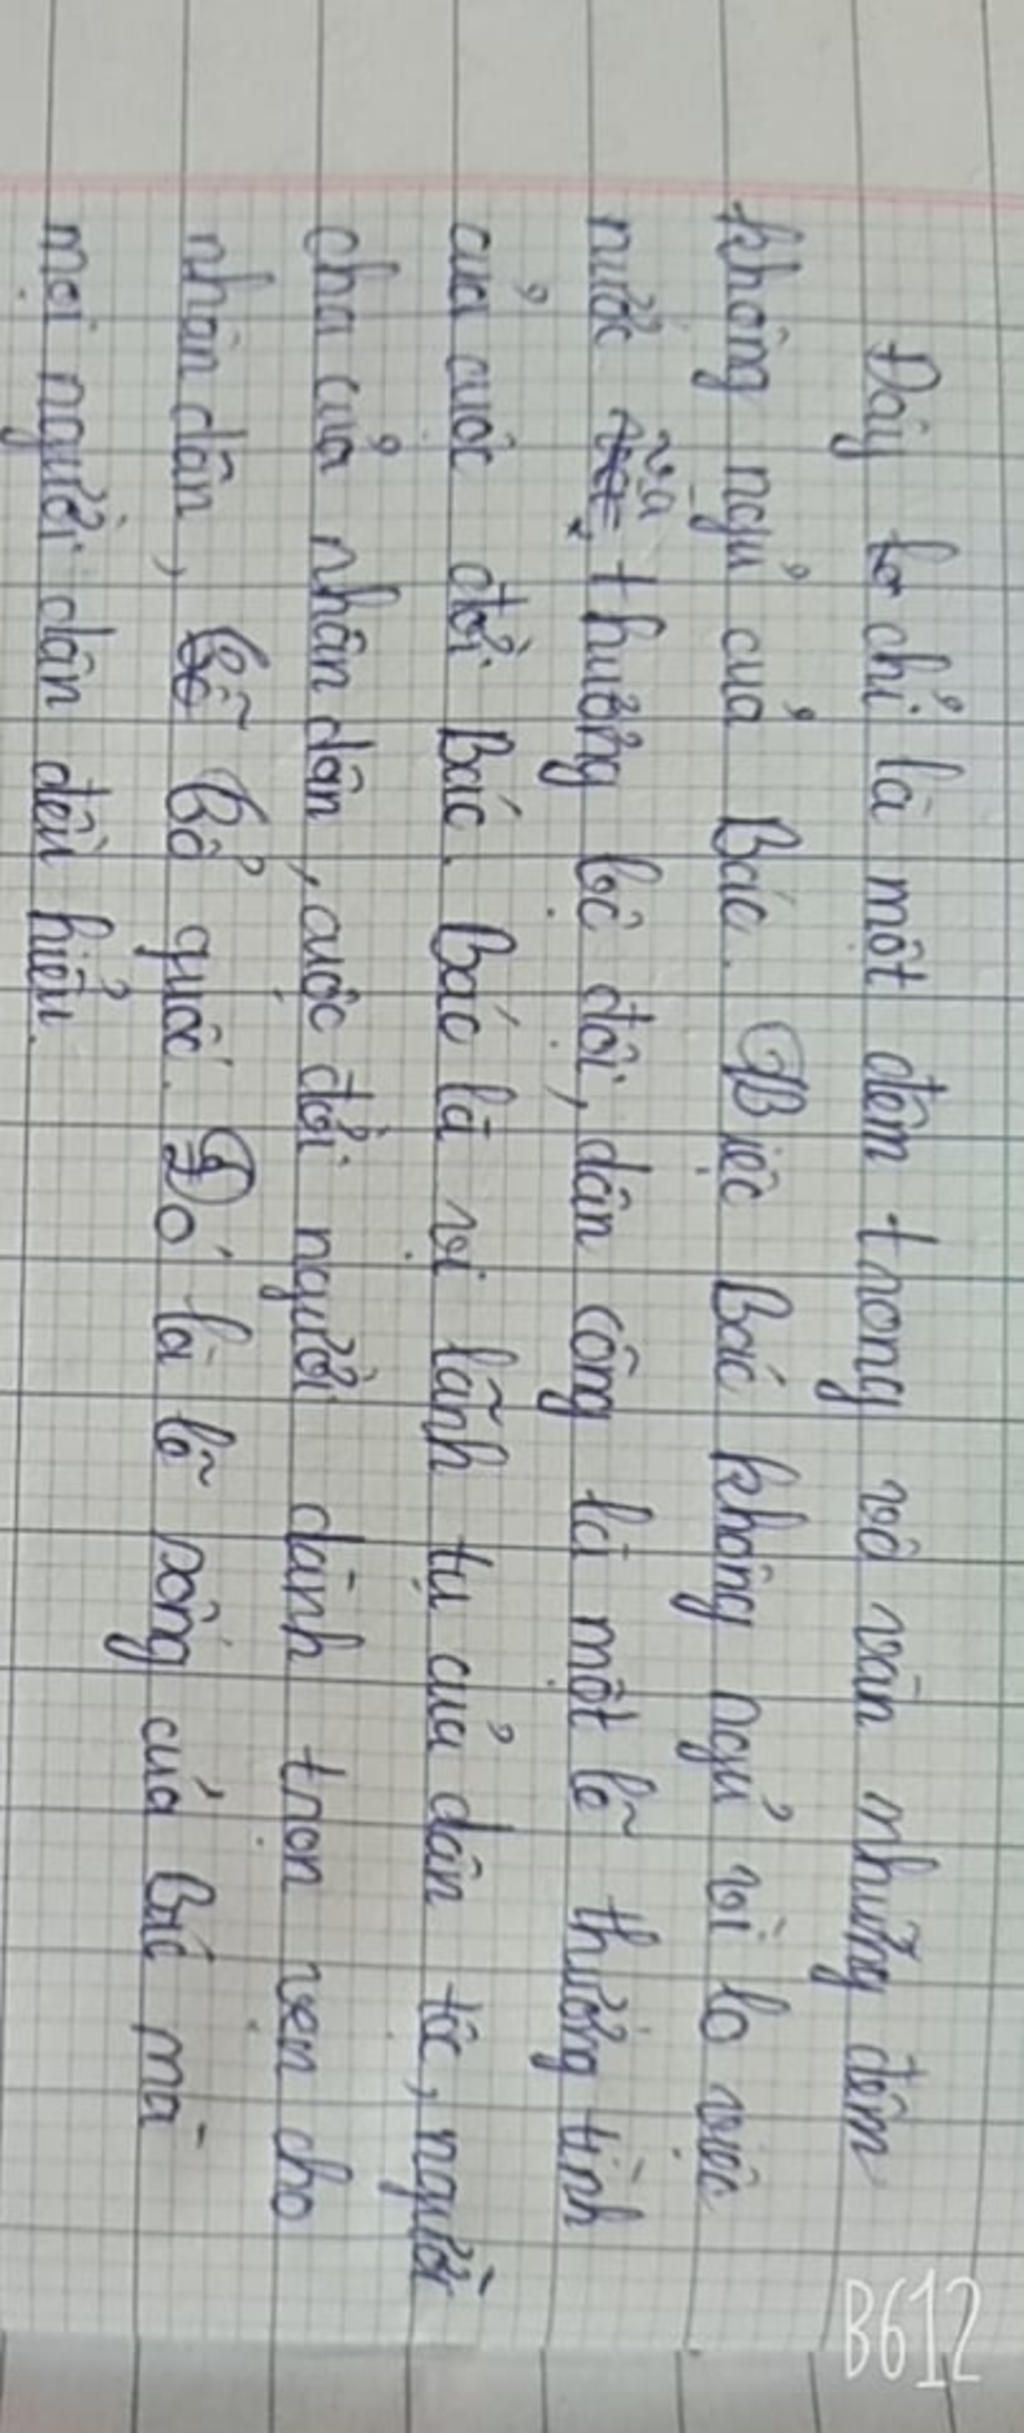 Đây lo chỉ là một đêm trong vô vàn những đêm
không ngủ của Bác. Việc Bác không ngủ vì lo việc
nước và thương bộ đội, dân công là một lẽ thường tình
của cuộc đời Bác. Bác là vị lãnh tụ của dân tộc, người
cha của nhân dân, cuộc đời người dành trọn vẹn cho
nhân dân, tổ quốc. Đó là lẽ sống của Bác mà
mọi người dân đều hiểu.
B612